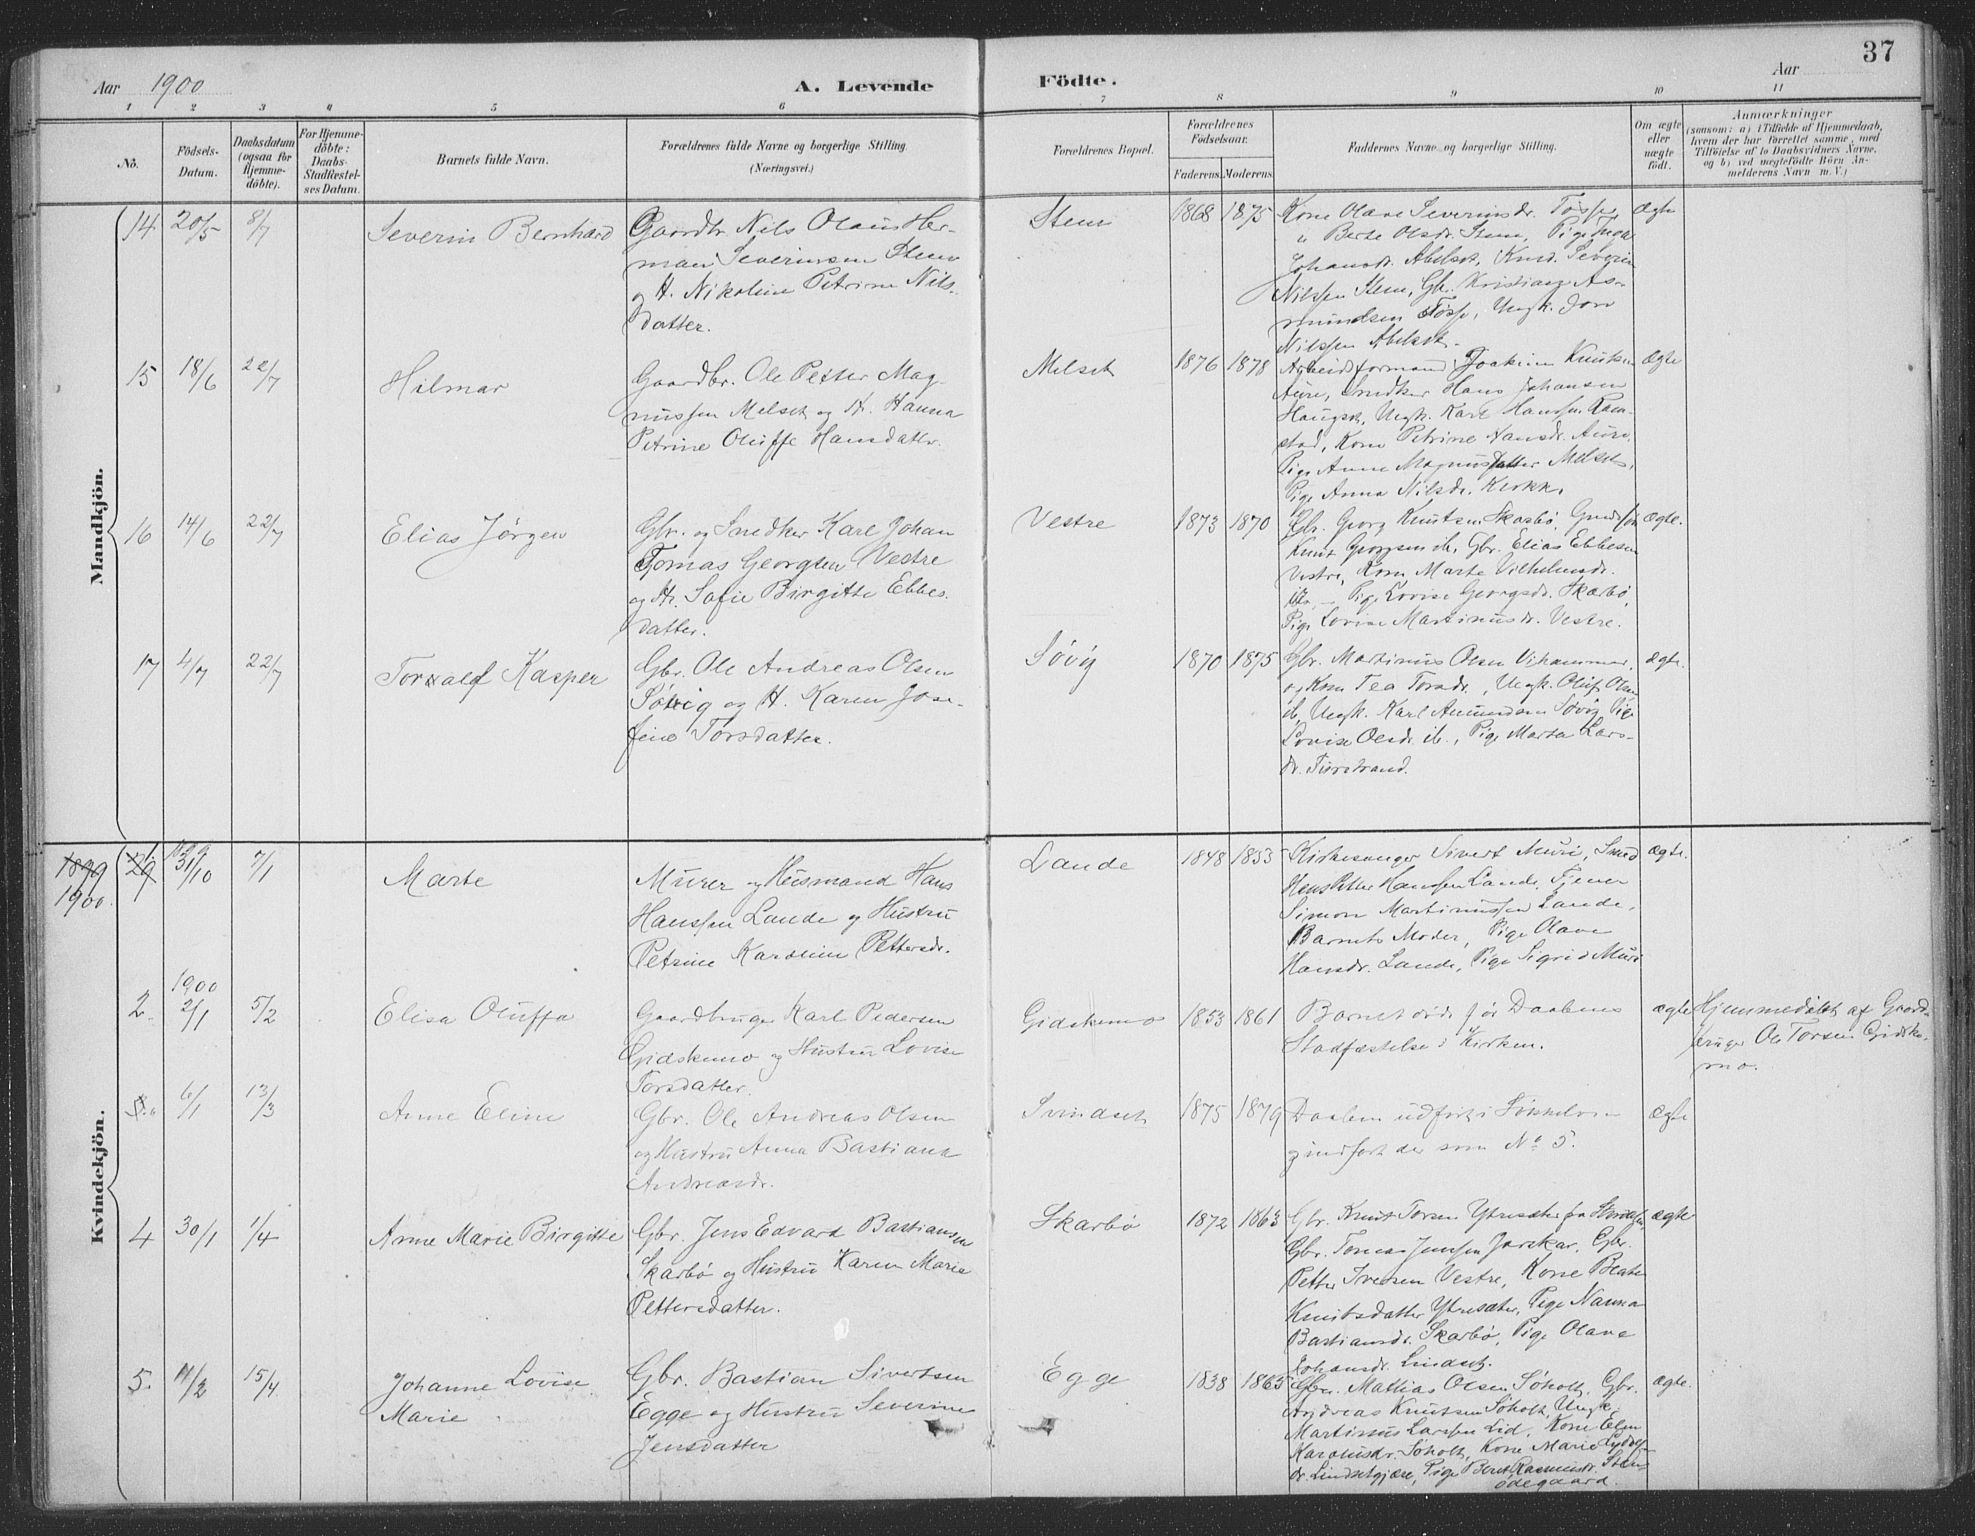 37
Aar 1900
A. Levende Födte.
Aar
1 2 3 4 5 6 7 8 9 10 11
No.
Födsels-
Datum.
Daabsdatum
(ogsaa for
Hjemme-
döbte).
For Hjemme-
döbte:
Daabs-
Stadfæstel-
ses Datum.
Barnets fulde Navn.
Forældrenes fulde Navne og borgerlige Stilling.
(Næringsvei.)
Forældrenes Bopæl.
Forældrenes
Födselsaar.
Faderens. Moderens.
Faddernes Navne og borgerlige Stilling.
Om ægte
eller
uægte
födt.
Anmærkninger
(saasom: a) i Tilfælde af Hjemmedaab,
hvem der har forrettet samme, med
Tilföielse af to Daabsvidners Navne,
og b) ved uægtefödte Börn An-
melderens Navn m. V.)
Mandkjön.
14 20/5 8/7 Severin Bernhard
Gaardbr. Nils Olaus Her-
man Severinsen Stene
og H. Nikoline Petrine Nils-
datter.
1868 1875
Kone Olave Severinsdr. Tøsse,
" Berte Olsdr. Stene, Pige
Johansdr. Abelset, Knud Severin
Nilssen Stene, Gbr. Kristian As-
mundsen Tøsse, Ungk.
Nilssen Abelset.
Ægte
15 18/6 22/7 Hilmar
Gaardbr. Ole Petter Mag-
nussen Melset og H. Hanna
Petrine Oluffe Hansdatter.
Melset
1876 1878
Arbeidsformand Joakim Knutsen
Aure, Snedker Hans Johansen
Haugset, Ungk. Karl Hanssen Ram-
stad, Kone Petrine Hansdr. Aure,
Pige Anne Magnusdatter Melset,
Pige Anna Nilsdr. Kirkk.
Ægte
16 14/6 22/7 Elias Jørgen
Gbr. og Snedker Karl Johan
Tomas Georgsen Vestre
og H. Sofie Birgitte Ebbes-
datter.
Vestre
1873 1870
Gbr. Georg Knutsen Skarbø,
Knut Georgsen ib, Gbr. Elias Ebbesen
Vestre, Kone Marte Vilhelmsdr.
Pige Lovise Georgsdr. Skarbø,
Pige Lovise Martinusdr. Vestre.
ægte.
17 4/7 22/7 Torvalf Kasper
Gbr. Ole Andreas Olsen
Søvig og H. Karen Jose-
fine Torsdatter.
Søvig
1870 1875
Gbr. Martinus Olsen Vihammer,
og Kone Tea Torsdr., Ungk. Oluf Olsen
ib, Ungk. Karl Amundsen Søvig, Pige
Lovise Olsdr. ib., Pige Marta Lars-
dr. Tusstrand.
ægte.
Kvindekjön.
1899
1900.
29 1
1899
31/10 7/1 Marte
Murer og Husmand Hans
Hanssen Lande og Hustru
Petrine Karoline Pettersdr.
Lande
1848 1855
Kirkesanger Sivert Muri, Smed
Hans Petter Hanssen Lande, Tjener
Simon Martinussen Lande,
Barnets Moder, Pige Olave
Hansdr. Lande, Pige Sigrid Muri
ægte.
1900
2. 2/1 5/2 Elisa Oluffa
Gaardbruger Karl Pedersen
Gidskemo og Hustru Lovise
Torsdatter.
Gidskemo
1853 1861
Barnet døde før Daabens
Stadfæstelse i Kirken.
ægte
Hjemmedøbt af Gaard-
bruger Ole Torsen Gidske-
mo.
3. 6/1 13/3 Anne Eline
Gbr. Ole Andreas Olsen
og Hustru Anna Bastiane
Andreasdr.
Svindset
1875 1879
Daaben udført i Søkkelven
og indført der som No 5.
Ægte
4 30/1 1/4 Anne Marie Birgitte
Gbr. Jens Edvard Bastiansen
Skarbø og Hustru Karen Marie
Pettersdatter.
Skarbø
1872 1863
Gbr. Knut Torsen Ytresæter fra
Gbr. Tomas Jenssen Jarskar, Gbr.
Petter Iversen Vestre, Kone Beate
Knutsdatter Ytresæter, Pige Nanna
Bastiansdr. Skarbø, Pige Olave
Johansdr. Lindset.
ægte
5. 11/2 15/4 Johanne Lovise
Marie
Gbr. Bastian Sivertsen
Egge og Hustru Severine
Jensdatter
Egge
1838 1865
Gbr. Mathias Olsen Søholt, Gbr.
Andreas Knutsen Søholt, Ungk.
Martinus Larssen Lid, Kone Elen
Karolusdr. Søholt, Kone Marie
dr. Lindsetgjære, Pige Beret Rasmusdr. Sten-
ødegaard.
ægte.